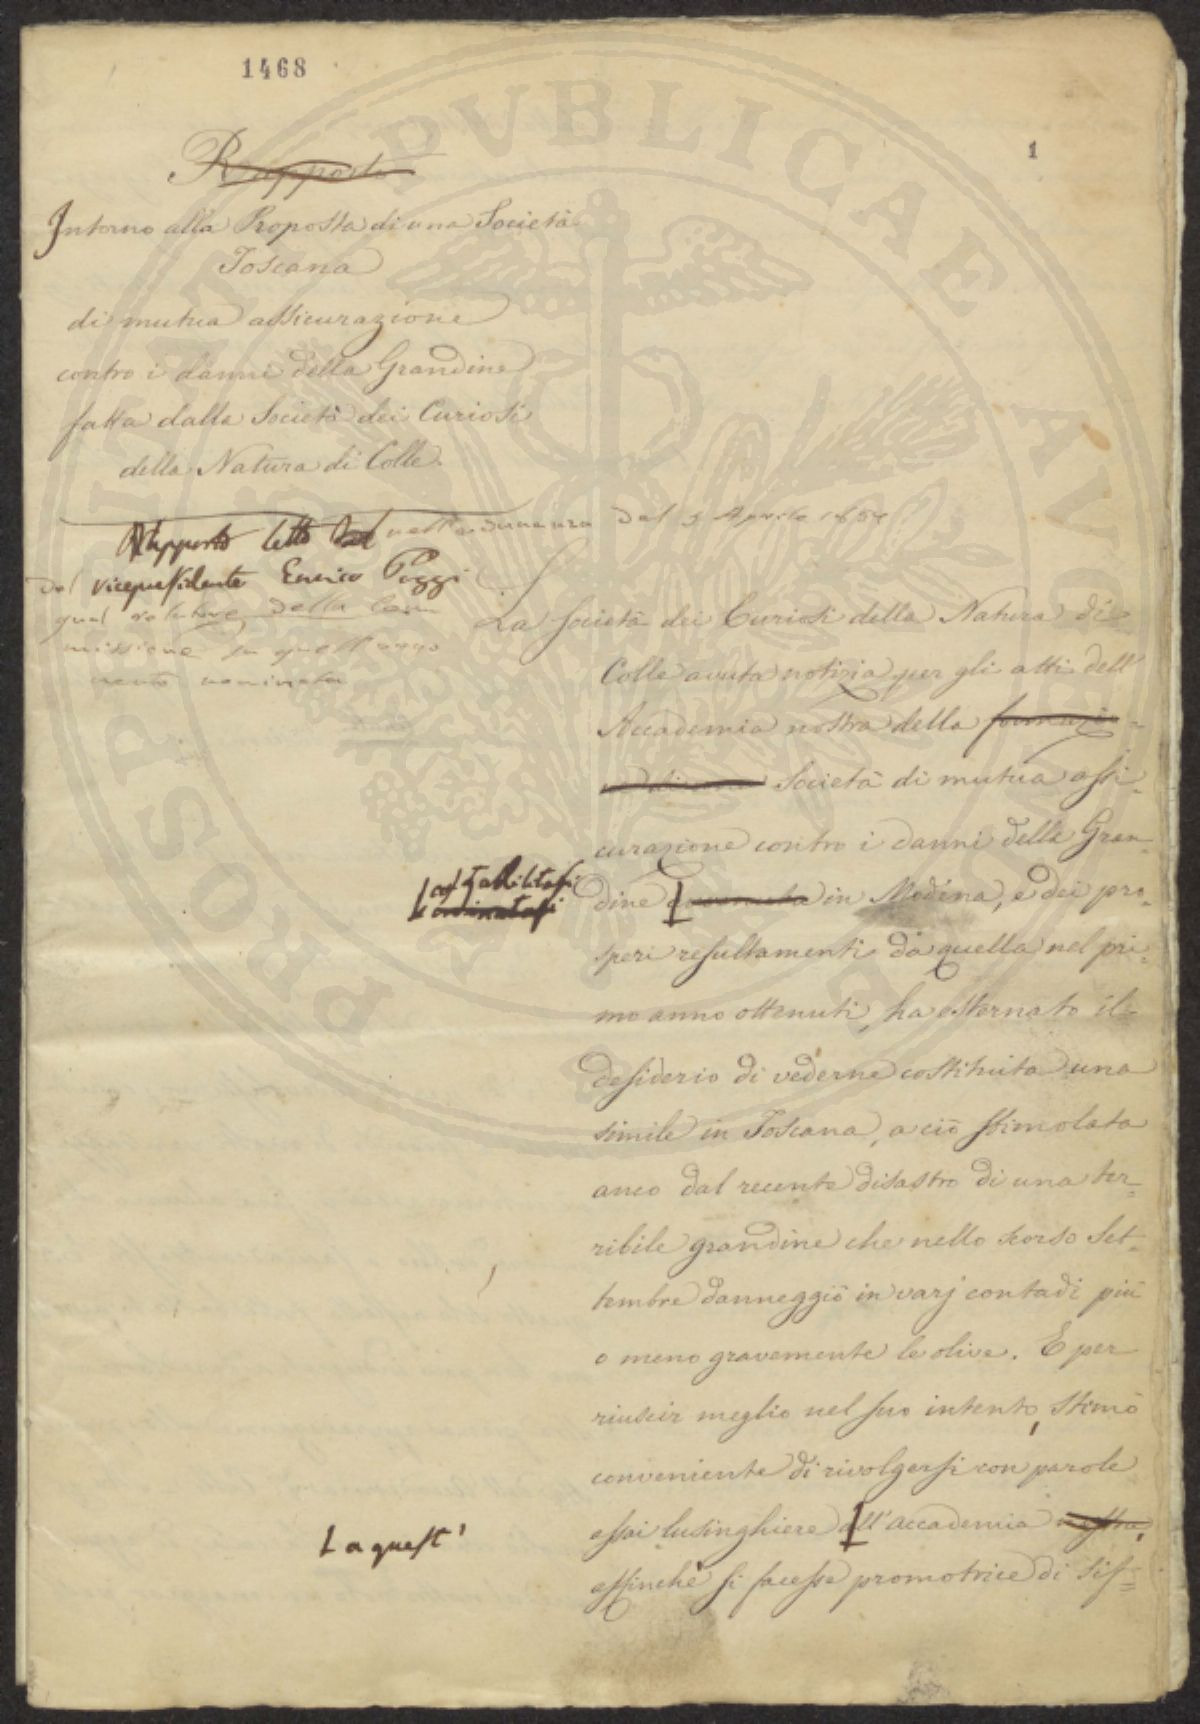 1468
1
Rapporto
Intorno alla Proposta di una Società
Toscana
di mutua assicurazione
contro i danni della Grandine
fatta dalla Società dei Curiosi
della Natura di Colle.
Rapporto letto nell'adunanza del 5 Aprile
dal vicepresidente Enrico Poggi
qual relatore della Com
missione su quell'argo
mento nominata
La società dei Curiosi della Natura di
Colle avuta notizia per gli atti dell'
Accademia nostra della formazio-
ne di una Società di mutua assi-
curazione contro i danni della Gran-
stabilitasi
dine avvenuta in Modena, e dei pro-
speri resultamenti da quella nel pri-
mo anno ottenuti, ha esternato il
desiderio di vederne costituita una
simile in Toscana, a ciò stimolata
anco dal recente disastro di una ter-
ribile grandine che nello scorso Set-
tembre danneggiò in varj contadi più
o meno gravemente le olive. E per
riuscir meglio nel suo intento, stimò
conveniente di rivolgersi con parole
assai lusinghiere all'accademia nostra,
a quest'
affinchè si facesse promotrice di sif-
PROSPERITATI PVBLICAE AVGENDAE